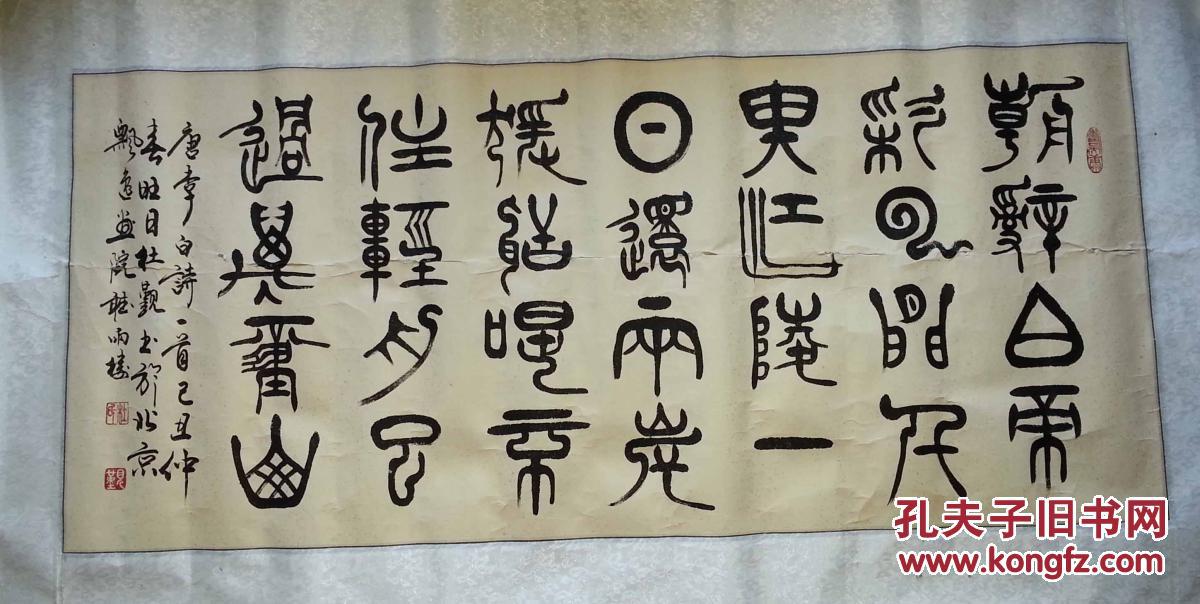 朝辭白帝
彩云間千
里江陵一
日還兩岸
猨聲啼不
住輕舟已
過萬重山
唐李白詩一首己丑仲
春旺日杜觀書於北京
飄逸畫院聽雨樓
孔夫子旧书网
www.kongfz.com